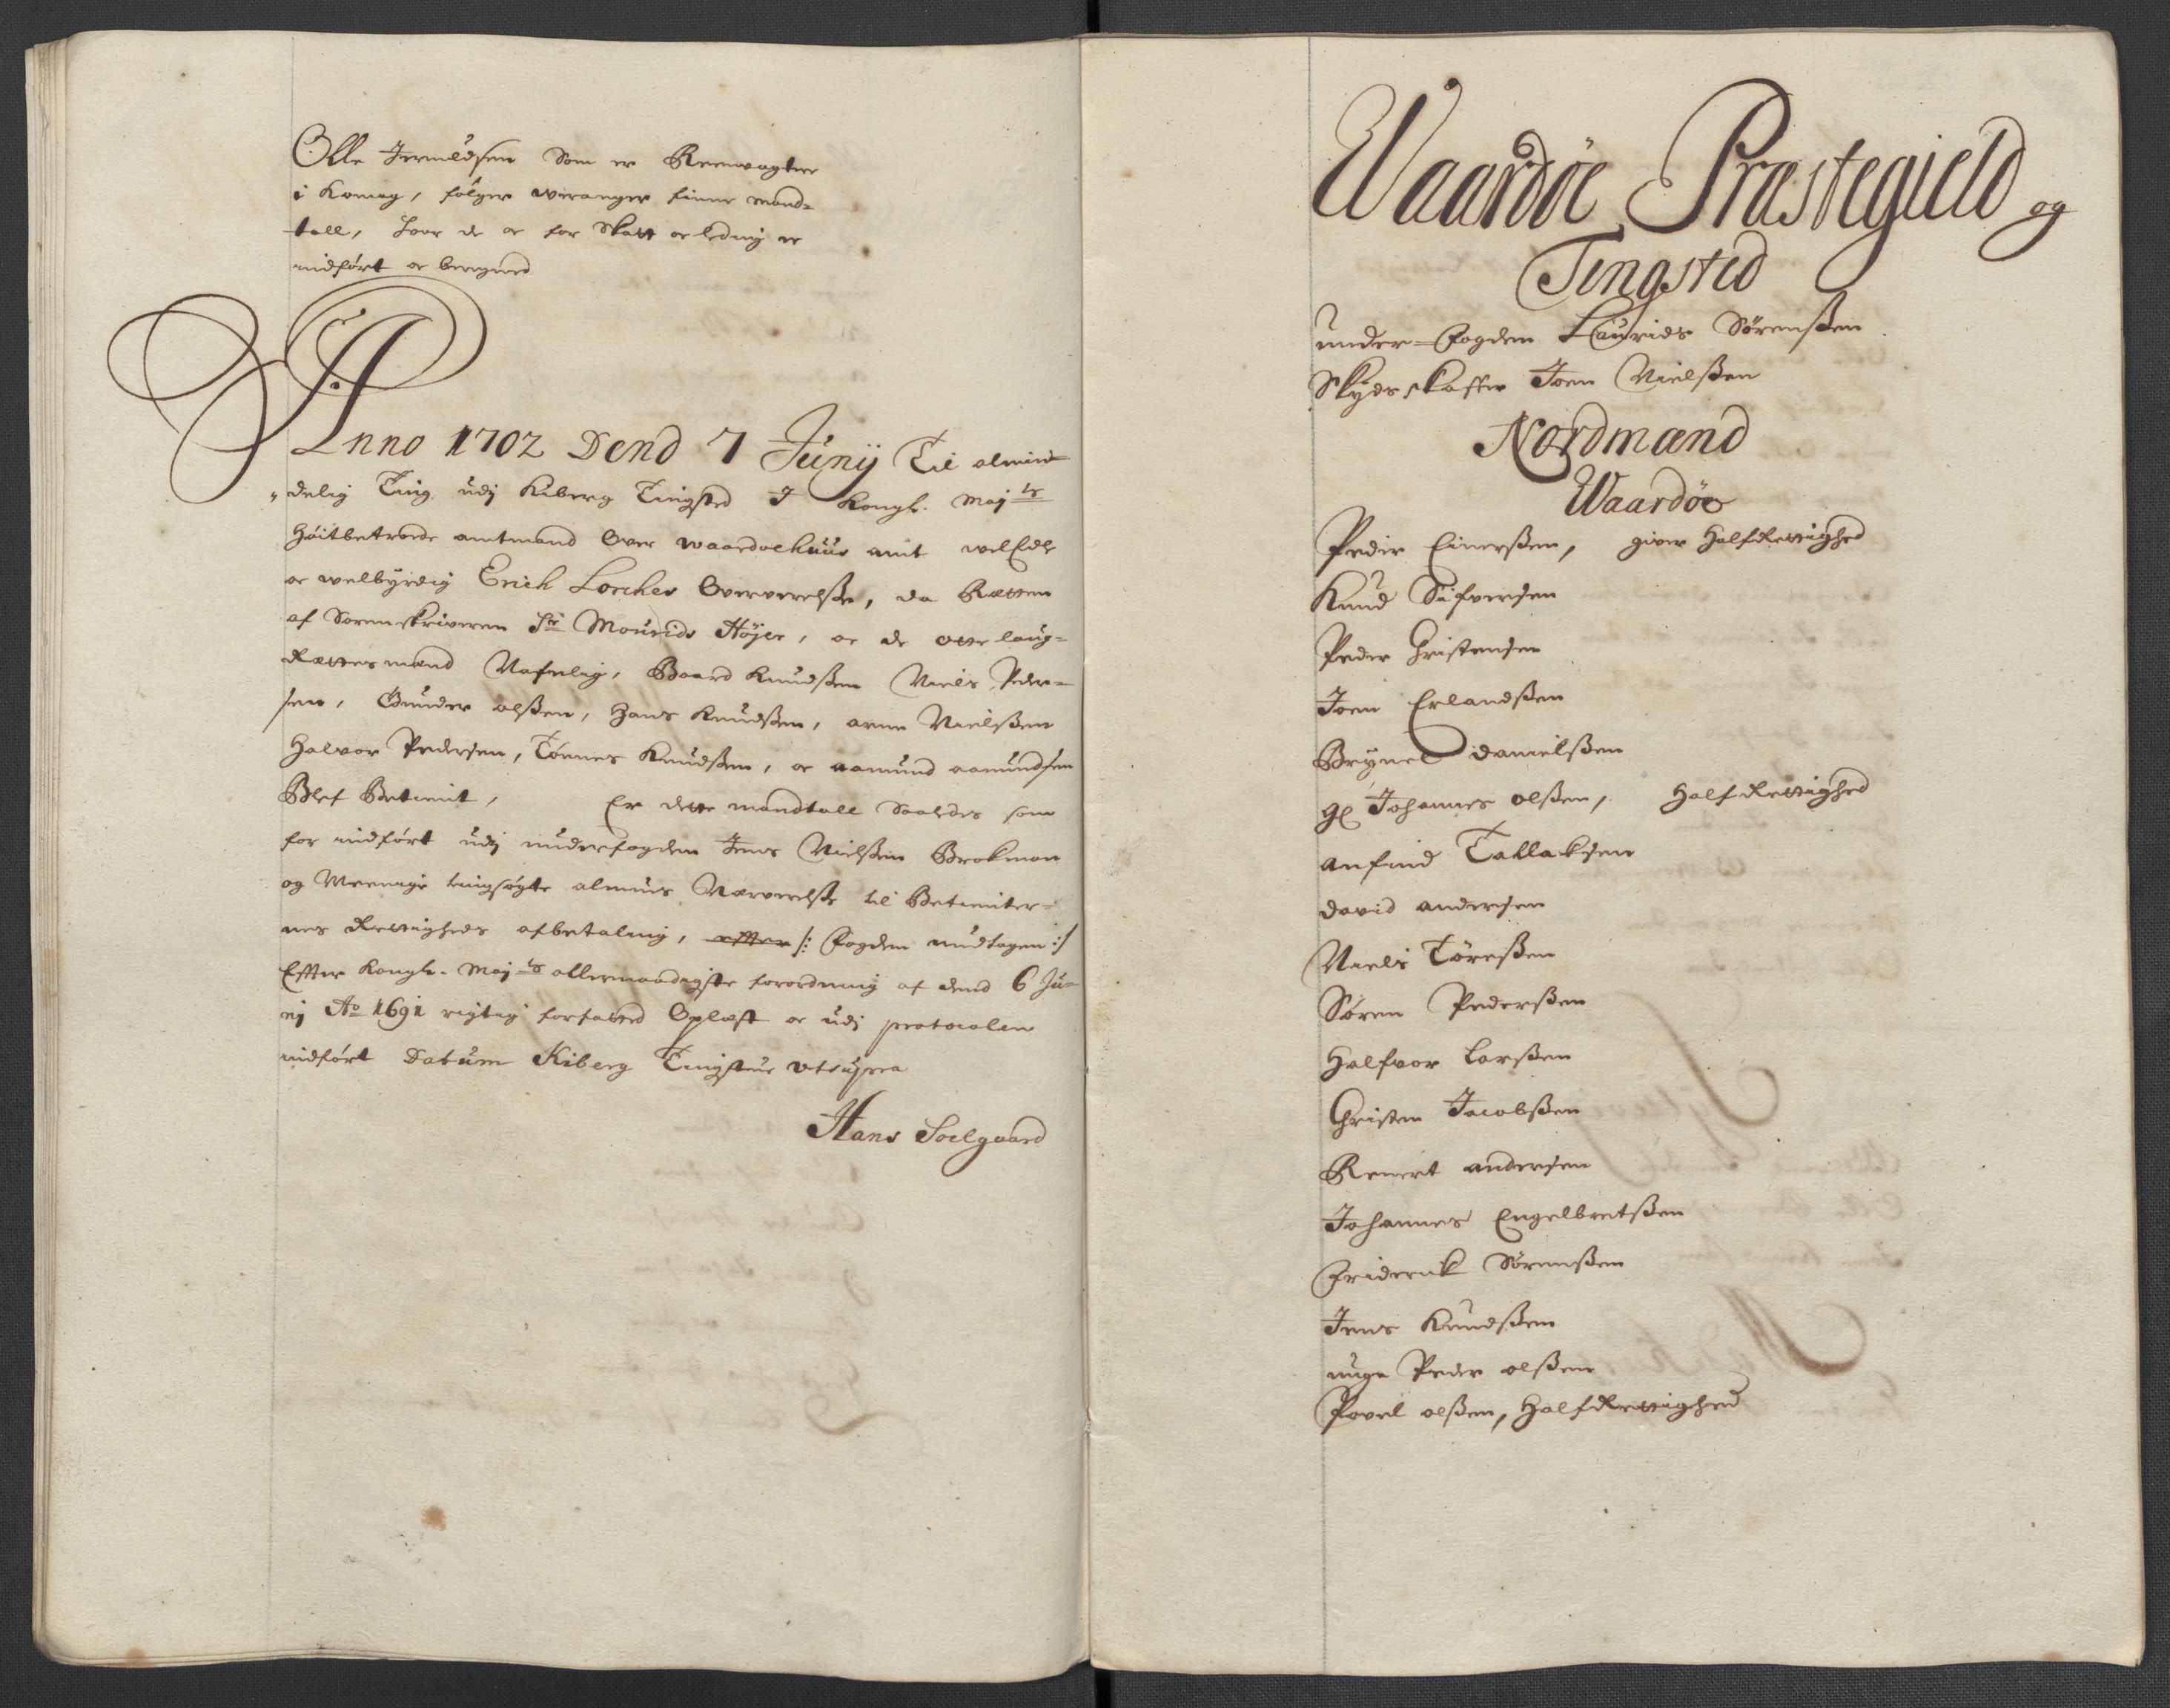 Olle Jermildsen Som er Reenvogter
i Komag, følger Waranger finne mand-
tall, hvor de oc for Skatt oc leding er
indført oc beregned
Anno 1702 Dend 7 Junij Til almin-
delig Ting udj Kiberg Tingsted I Kongl. Maj:ts
Høitbetroede amtmand Over Waardoehuus amt welEdle
oc welbyrdig Erich Lorches Oververelse, da Retten
af Sorenskriveren Sr Mourids Høyer, oc de otte laug-
Rettesmænd Nafnlig, Baard Knudsen Niels Peder-
sen, Gunder olsen, Hans Knudsen, arne Nielsen
Halvor Pedersen, Tønnes Knudsen, oc aamund aamundsen
Blef Betient, Er dette mandtall Saaledes som
for indført udj underfogden Jens Nielsen Brokman
og Meenige tingsøgte almues Nærverelse til Betienter-
nes Rettigheds afbetaling, efter /: Fogden undtagen :/
Efter Kongl. Maj:ts allernaadigste forordning af dend 6 Ju-
nj Ao 1691 rigtig forfatted Oplæst oc udj protocolen
indført Datum Kiberg Tingstue utsupra
Hans Soelgaard
Waardøe Præstegield og
Tingsted
under-Fogden Laurids Sørensen
Skydsskaffer Joen Nielsen
Nordmænd
Waardøe
Peder Einersen, giver Half Rettighed
Knud Siversen
Peder Christensen
Joen Erlandsen
Brynel danielsen
gl Johannes olsen, Half Rettighed
anfind Tallaksen
david andersen
Niels Toresen
Søren Pedersen
Halfvor Larsen
Christen Jacobsen
Reinert andersen
Johannes Engelbretsen
Friderick Sørensen
Jens Knudsen
unge Peder olsen
Povel olsen, Half Rettighed